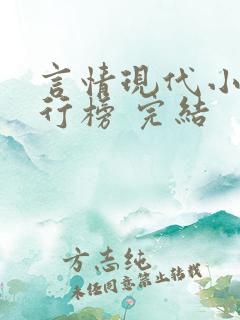 言情现代小
行榜 完结
方志纯
未经同意禁止转载